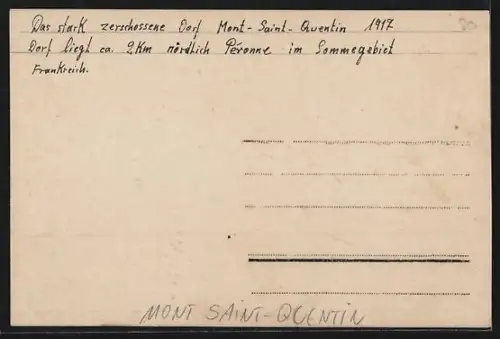 Das stark zerschossene Dorf Mont-Saint-Quentin 1917
Dorf liegt ca. 2Km nördlich Péronne im Sommegebiet
Frankreich.
MONT SAINT-QUENTIN